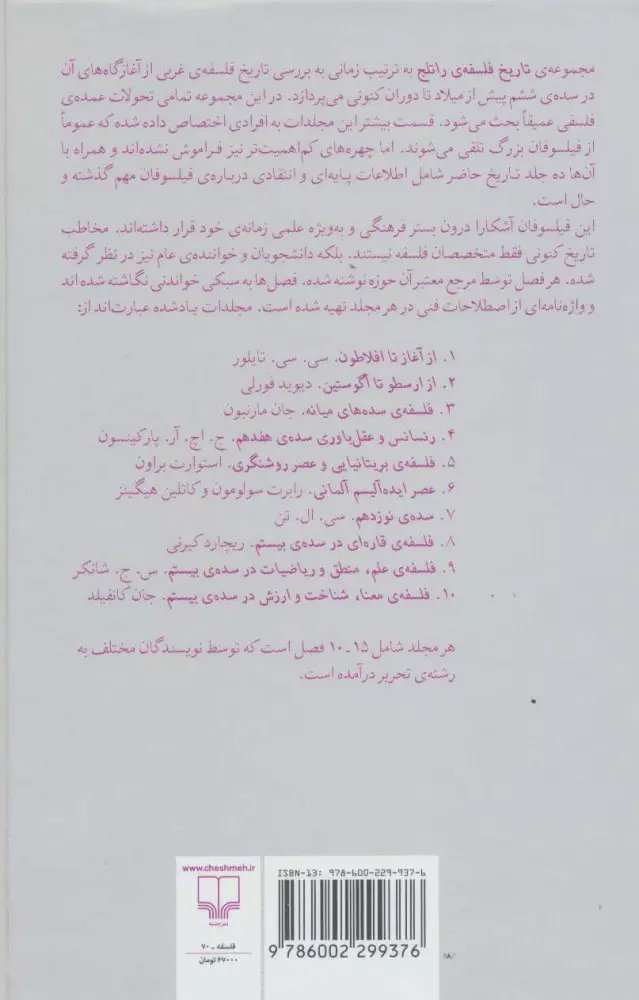 مجموعه‌ی تاریخ فلسفه‌ی راتلج به ترتیب زمانی به بررسی تاریخ فلسفه‌ی غربی از آغازگاه‌های آن
در سده‌ی ششم پیش از میلاد تا دوران کنونی می‌پردازد. در این مجموعه تمامی تحولات عمده‌ی
فلسفی عمیقاً بحث می‌شود. قسمت بیشتر این مجلدات به افرادی اختصاص داده شده که عموماً
از فیلسوفان بزرگ تلقی می‌شوند. اما چهره‌های کم‌اهمیت‌تر نیز فراموش نشده‌اند و همراه با
آن‌ها ده جلد تاریخ حاضر شامل اطلاعات پایه‌ای و انتقادی درباره‌ی فیلسوفان مهم گذشته و
حال است.
این فیلسوفان آشکارا درون بستر فرهنگی و به‌ویژه علمی زمانه‌ی خود قرار داشته‌اند. مخاطب
تاریخ کنونی فقط متخصصان فلسفه نیستند. بلکه دانشجویان و خواننده‌ی عام نیز در نظر گرفته
شده. هر فصل توسط مرجع معتبر آن حوزه نوشته شده. فصل‌ها به سبکی خواندنی نگاشته شده‌اند
و واژه‌نامه‌ای از اصطلاحات فنی در هر مجلد تهیه شده است. مجلدات یادشده عبارت‌اند از:
۱. از آغاز تا افلاطون. سی. سی. تایلور
۲. از ارسطو تا آگوستین. دیوید فورلی
۳. فلسفه‌ی سده‌های میانه. جان مارنبون
۴. رنسانس و عقل‌باوری سده‌ی هفدهم. ج. اچ. آر. پارکینسون
۵. فلسفه‌ی بریتانیایی و عصر روشنگری. استوارت براون
۶. عصر ایده‌آلیسم آلمانی. رابرت سولومون و کاتلین هیگینز
۷. سده‌ی نوزدهم. سی. ال. تن
۸. فلسفه‌ی قاره‌ای در سده‌ی بیستم. ریچارد کیرنی
۹. فلسفه‌ی علم، منطق و ریاضیات در سده‌ی بیستم. س. ج. شانکر
۱۰. فلسفه‌ی معنا، شناخت و ارزش در سده‌ی بیستم. جان کانفیلد
هر مجلد شامل ۱۵ـ۱۰ فصل است که توسط نویسندگان مختلف به
رشته‌ی تحریر درآمده است.
www.cheshmeh.ir
نشر چشمه
فلسفه ـ ۷۰
۶۷۰۰۰ تومان
ISBN-13: 978-600-229-937-6
9 786002 299376